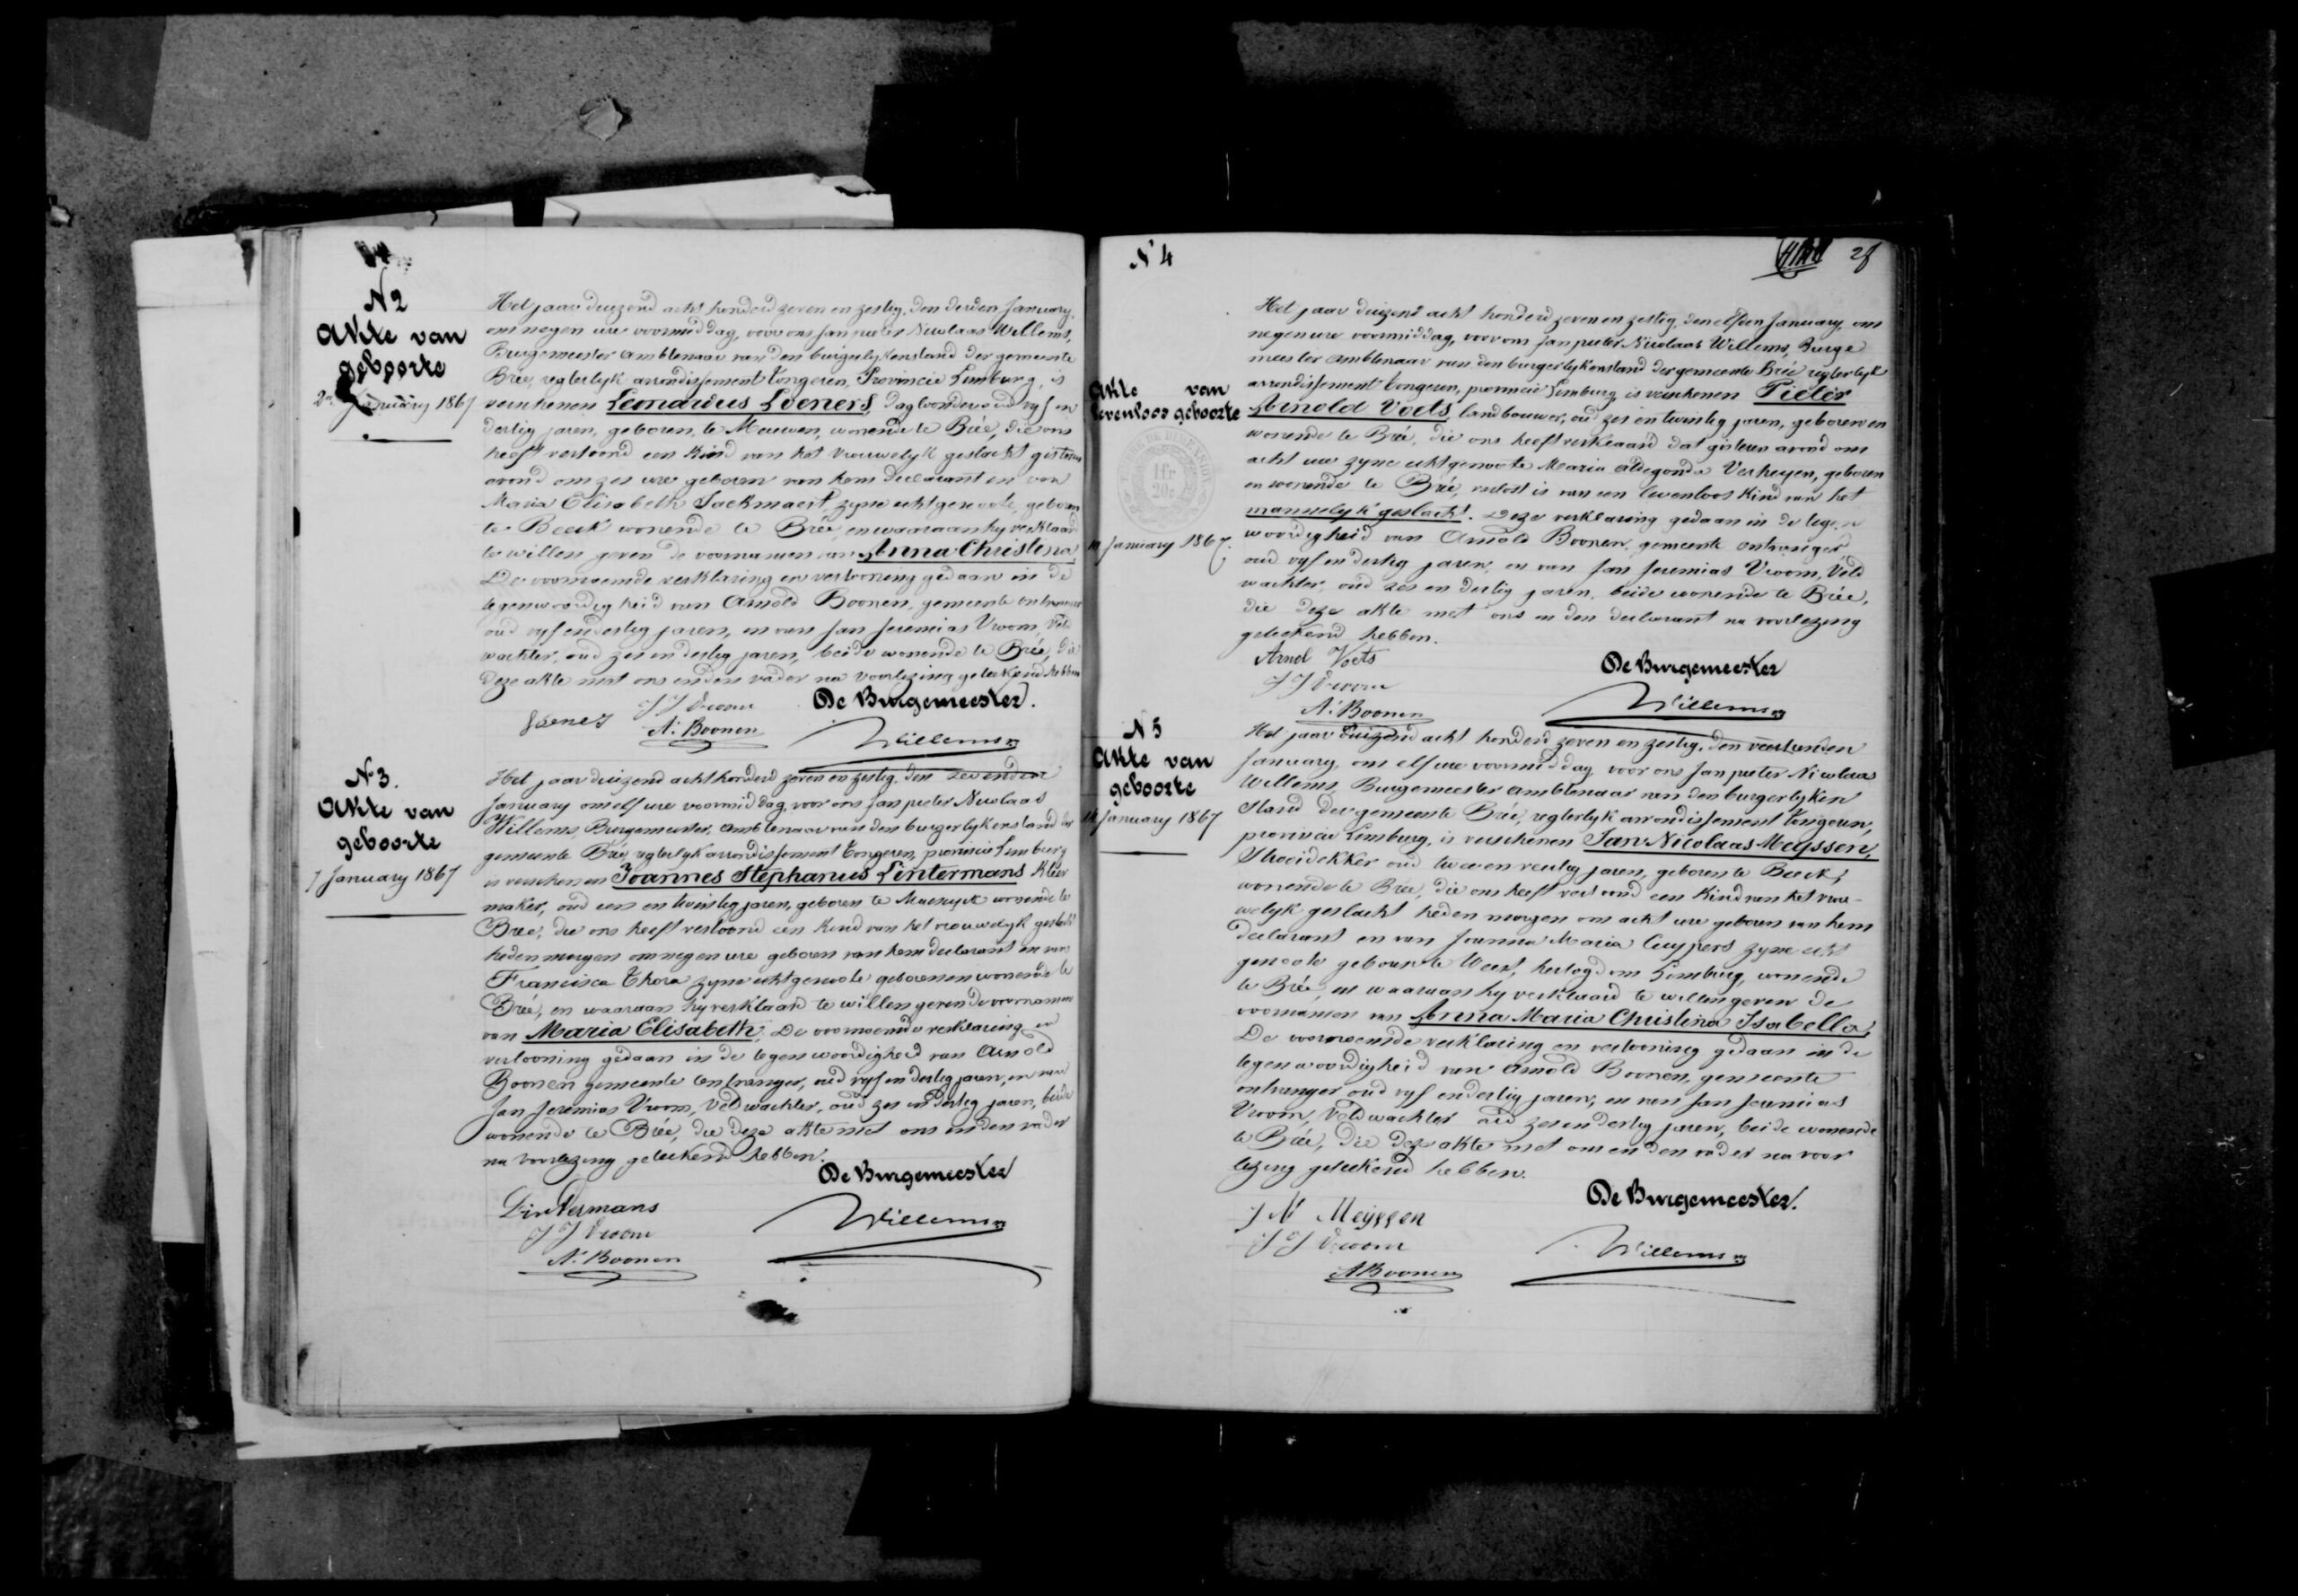 N 2
Akte van
geboorte
2en January 1867
Het jaar duizend acht honderd zeven en zestig, den derden January,
om negen ure voormiddag, voor ons Jan pieter Nicolaas Willems,
Burgemeester Ambtenaar van den burgerlykenstand der gemeente
Brée, regterlyk arrondissement Tongeren, Provincie Limburg, is
verschenen Leonardus Loeners, dagloonder oud vyf en
dertig jaren, geboren te Meeuwen, wonende te Brée, die ons
heeft vertoond een Kind van het vrouwelyk geslacht gisteren
avond om zes ure geboren van hem declarant en van
Maria Elisabeth Jackmaert zyne echtgenoote, geboren
te Beeck wonende te Brée, en waaraan hy verklaard
te willen geven de voornamen van Anna Christina
De voornoemde verklaring en vertooning gedaan in de
tegenwoordigheid van Arnold Boonen, gemeente ontvanger
oud vyf endertig jaren, en van Jan Jeremias Vroom, Veld
wachter, oud zes en dertig jaren, beide wonende te Brée, die
deze akte met ons en den vader na voorlezing geteekend hebben
J J Vroom
De Burgemeester.
A. Boonen
Willems
N 3.
Akte van
geboorte
7 January 1867
Het jaar duizend acht honderd zeven en zestig, den zevenden
January om elf ure voormiddag, voor ons Jan pieter Nicolaas
Willems Burgemeester, Ambtenaar van den burgerlykenstand der
gemeente Brée, regterlyk arrondissement Tongeren, provincie Limburg
is verschenen Joannes Stephanus Lintermans Kleer
maker, oud een en twintig jaren, geboren te Maeseyck wonende te
Brée, die ons heeft vertoond een Kind van het vrouwelyk geslacht
heden morgen om negen ure geboren van hem declarant en van
Francisca Thora zyne echtgenoote geboren en wonende te
Brée, en waaraan hy verklaard te willen geven de voornamen
van Maria Elisabeth. De voornoemde verklaring en
vertooning gedaan in de tegenwoordigheid van Arnold
Boonen gemeente ontvanger, oud vyf en dertig jaren, en van
Jan Jeremias Vroom, Veldwachter, oud zes en dertig jaren, beide
wonende te Brée, die deze akte met ons en den vader
na voorlezing geteekend hebben.
De Burgemeester
Lintermans
J J Vroom
Willems
A. Boonen
28
N 4
Akte van
levenloos geboorte
January 1867.
1fr
20c
Het jaar duizend acht honderd zeven en zestig, den elfden January, om
negen ure voormiddag, voor ons Jan pieter Nicolaas Willems, Burge
meester Ambtenaar van den burgerlykenstand der gemeente Brée regterlyk
arrondissement Tongeren, provincie Limburg is verschenen Pieter
Arnold Voets, landbouwer, oud zes en twintig jaren, geboren en
wonende te Brée, die ons heeft verklaard dat gisteren avond om
acht ure zyne echtgenoote Maria Aldegonda Verheyen, geboren
en wonende te Brée, verlost is van een levenloos Kind van het
mannelyk geslacht. Deze verklaring gedaan in de tegen
woordigheid van Arnold Boonen, gemeente ontvanger
oud vyf en dertig jaren, en van Jan Jeremias Vroom, Veld
wachter, oud zes en dertig jaren, beide wonende te Brée,
die deze akte met ons en den declarant na voorlezing
geteekend hebben.
Arnol Voets
De Burgemeester
J J Vroom
A. Boonen
Willems
N 5
Akte van
geboorte
14 January 1867
Het jaar duizend acht honderd zeven en zestig, den veertienden
January, om elf ure voormiddag voor ons Jan pieter Nicolaas
Willems, Burgemeester Ambtenaar van den burgerlyken
Stand der gemeente Brée, regterlyk arrondissement Tongeren,
provincie Limburg, is verschenen Jan Nicolaas Meyssen,
Strooidekker oud twee en veertig jaren, geboren te Beeck,
wonende te Brée, die ons heeft vertoond een Kind van het vrou-
welyk geslacht heden morgen om acht ure geboren van hem
declarant en van Joanna Maria Cuypers zyne echt
genoote geboren te Weert, hertogdom Limburg, wonende
te Brée, en waaraan hy verklaard te willen geven de
voornamen van Anna Maria Christina Isabella,
De voornoemde verklaring en vertooning gedaan in de
tegenwoordigheid van Arnold Boonen, gemeente
ontvanger oud vyf endertig jaren, en van Jan Jeremias
Vroom, Veldwachter oud zes en dertig jaren, beide wonende
te Brée, die deze akte met ons en den vader na voor
lezing geteekend hebben.
De Burgemeester.
J N Meyssen
J J Vroom
Willems
A Boonen